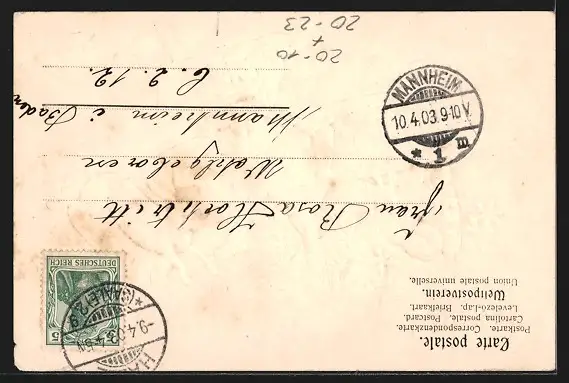 Carte postale.
Postkarte. Correspondenzkarte.
Cartolina postale. Postcard.
Levelezö-Lap. Briefkaart.
Weltpostverein.
Union postale universelle.
DEUTSCHES REICH
5
HALLE
-9.4.03
(SAALE) 2
MANNHEIM
10.4.03.9-10V.
* 1 m
Frau Rosa
Wohlgeboren
Mannheim i/ Baden
C. 2. 12.
20-10
+
20-23